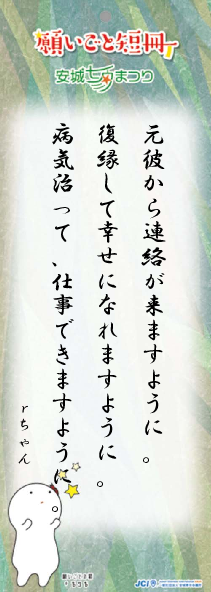 願いごと短冊
安城七夕まつり
元彼から連絡が来ますように。
復縁して幸せになれますように。
病気治って、仕事できますように
rちゃん
JCI